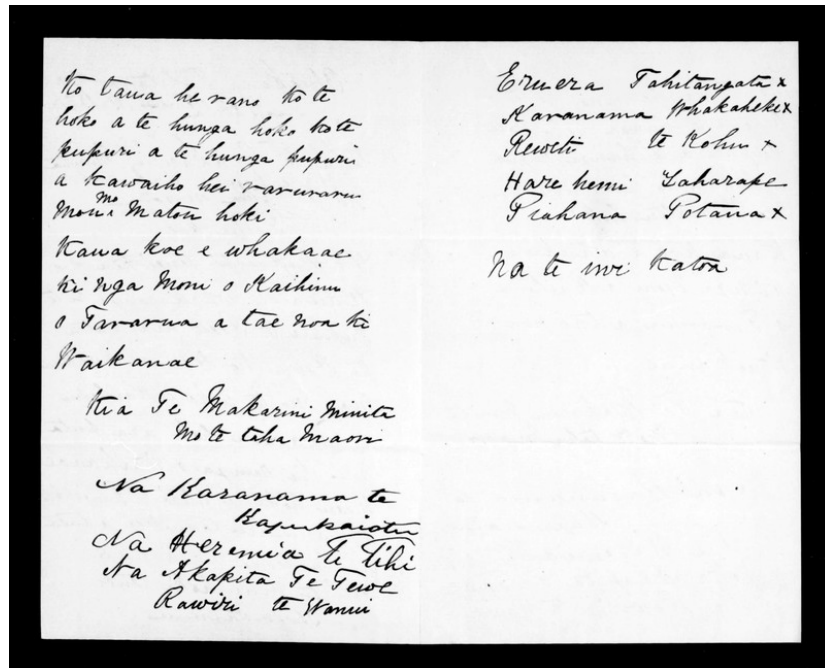 Ko taua he rano ko te
hoko a te hunga hoko ko te
pupuri a te hunga pupuri
a kawaiho hei raruraru
mou mo matou hoki
Kaua koe e whakaae
ki nga moni o Kaihinu
o Tararua a tae noa ki
Waikanae
Kia Te Makarini Minita
Mo te taha Maori
Na Karanama te
Kapukaiotu
Na Heremia Te Tihi
Na Akapita Te Tewe
Rawiri te Wanui
Eruera Tahitangata x
Karanama Whakaheke x
Reweti te Kohu x
Hare hemi Taharape
Piahana Potana x
Na te iwi katoa